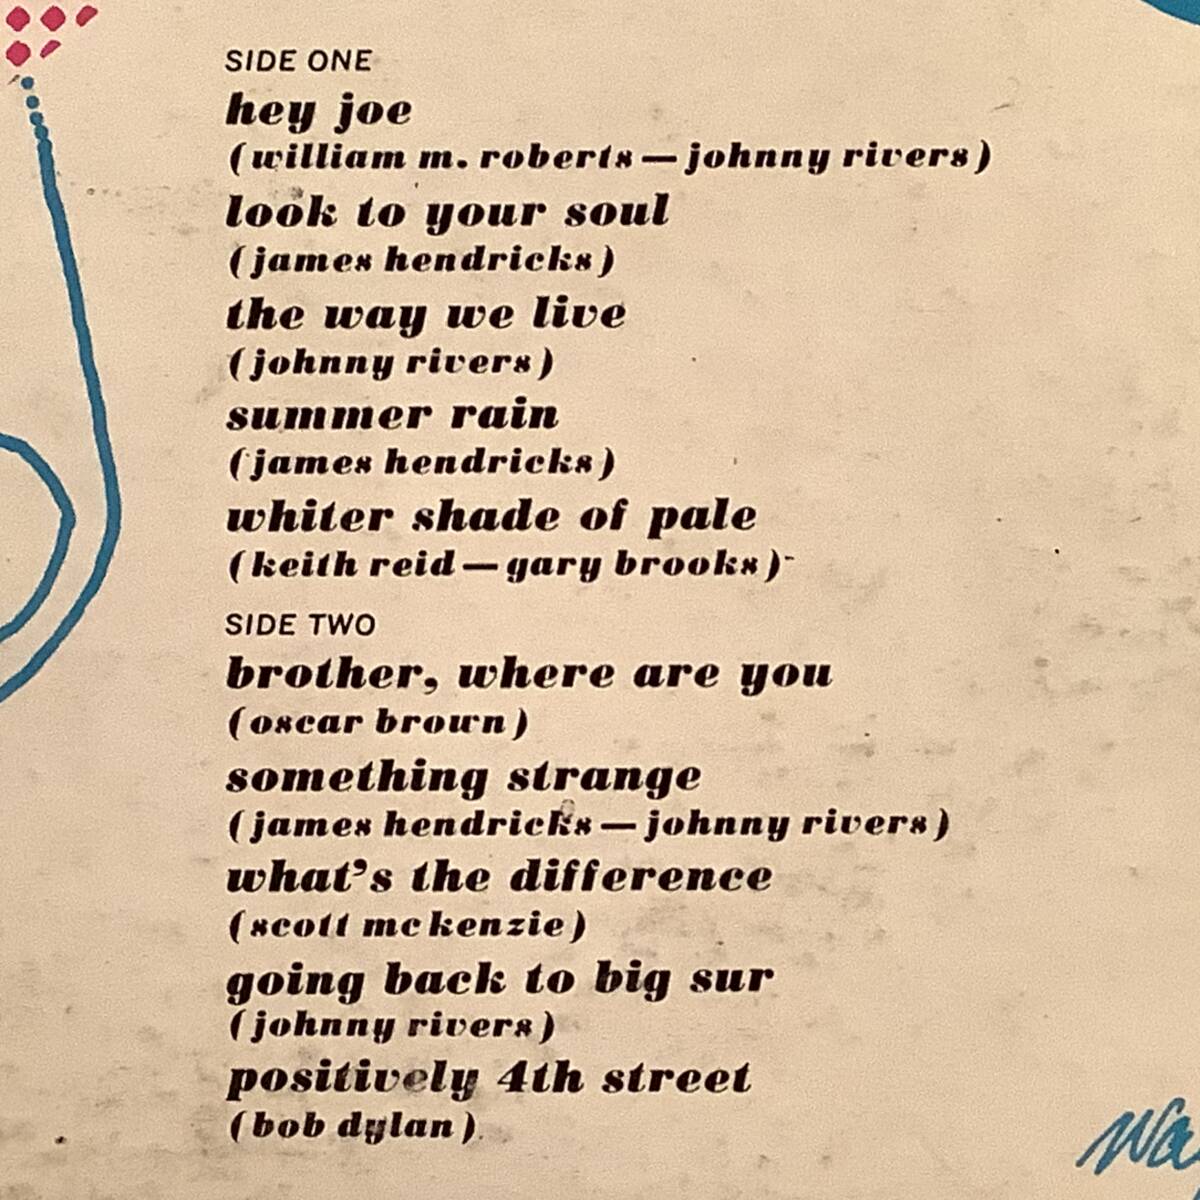 SIDE ONE
hey joe
(william m. roberts — johnny rivers)
look to your soul
(james hendricks)
the way we live
(johnny rivers)
summer rain
(james hendricks)
whiter shade of pale
(keith reid — gary brooks)
SIDE TWO
brother, where are you
(oscar brown)
something strange
(james hendricks — johnny rivers)
what's the difference
(scott mc kenzie)
going back to big sur
(johnny rivers)
positively 4th street
(bob dylan)